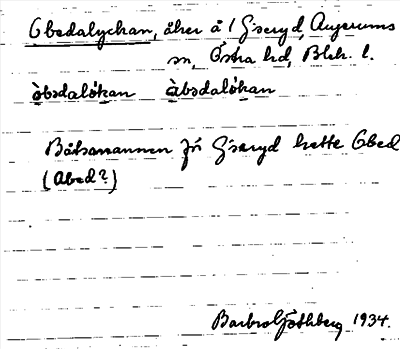 Obsdalyckan, åker å 1 Giseryd, Augerums
sn, Östra hd, Blek. l.
òbsdalók̀an àbsdalók̀an
Båtsmannen fr Giseryd hette Obed
(Abed?)
Barbro Göthberg 1934.